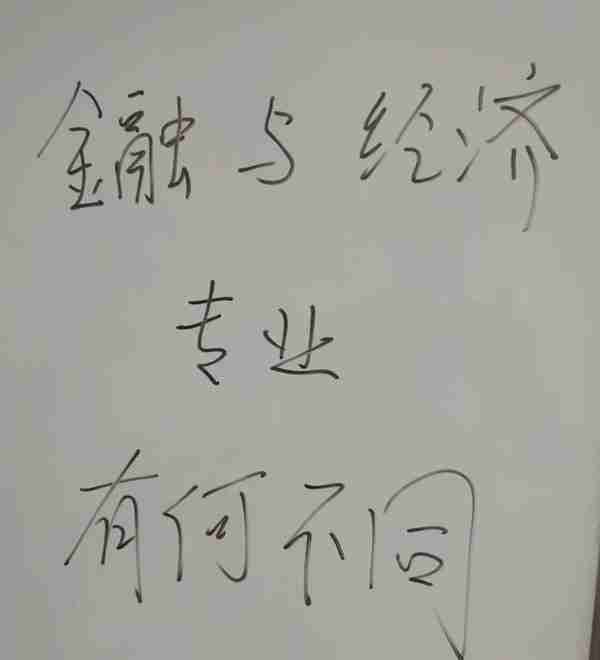 金融与经济
专业
有何不同